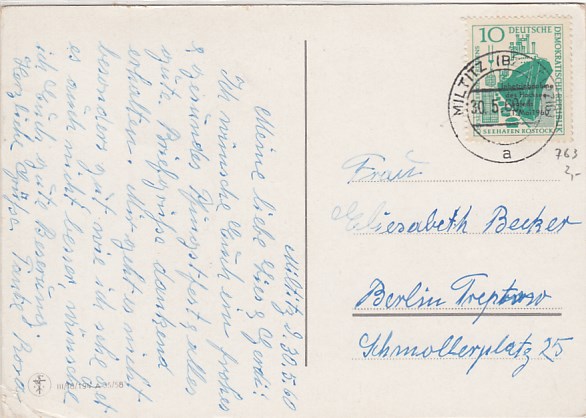 Miltitz d 30.5.60
Meine liebe Lies & Gerdi!
Ich wünsche Euch ein frohes
& gesundes Pfingstfest & alles
gut. Briefgrüße dankend
erhalten. Mir geht es nicht
besonders gut wie ich sehe ist
es auch nicht besser, wünsche
ich Euch gute Besserung.
Herzliche Grüße Tante Rosa
III/18/197 A 91/58
10 DEUTSCHE
DEMOKRATISCHE
SEEHAFEN ROSTOCK
MILTITZ (B
30.5.60
a
763
2,-
Frau
Eliesabeth Becker
Berlin Treptow
Schmollerplatz 25